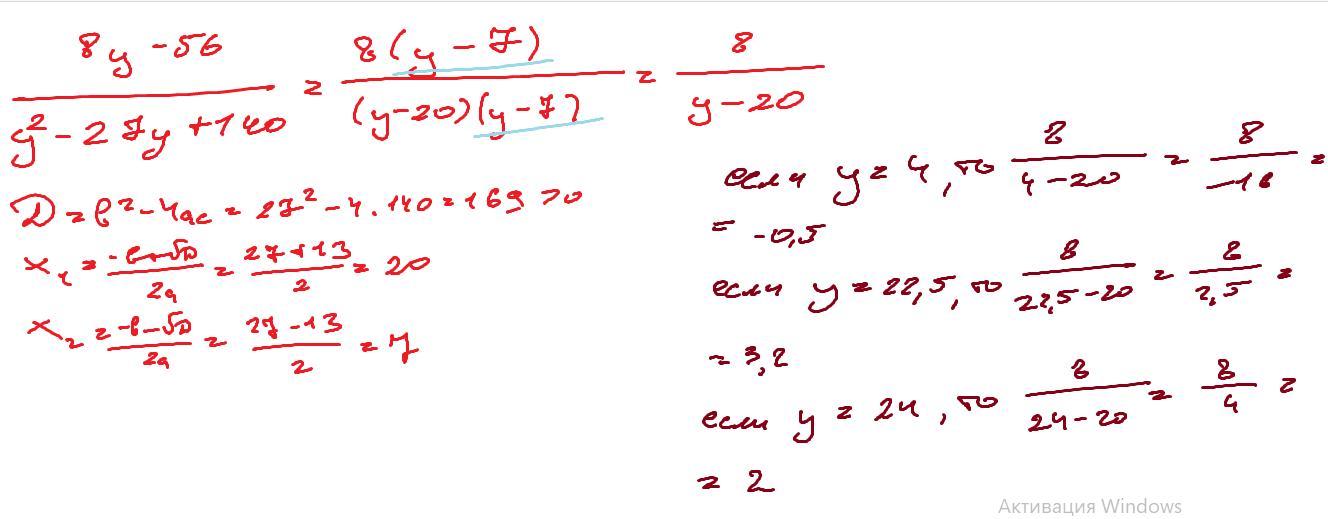 (8y - 56)/(y² - 27y + 140) = 8(y - 7)/((y - 20)(y - 7)) = 8/(y - 20)
D = b² - 4ac = 27² - 4 · 140 = 169 > 0
x₁ = (-b + √D)/2a = (27 + 13)/2 = 20
x₂ = (-b - √D)/2a = (27 - 13)/2 = 7
если y = 4, то 8/(4 - 20) = 8/(-16) =
= -0,5
если y = 22,5, то 8/(22,5 - 20) = 8/2,5 =
= 3,2
если y = 24, то 8/(24 - 20) = 8/4 =
= 2
Активация Windows